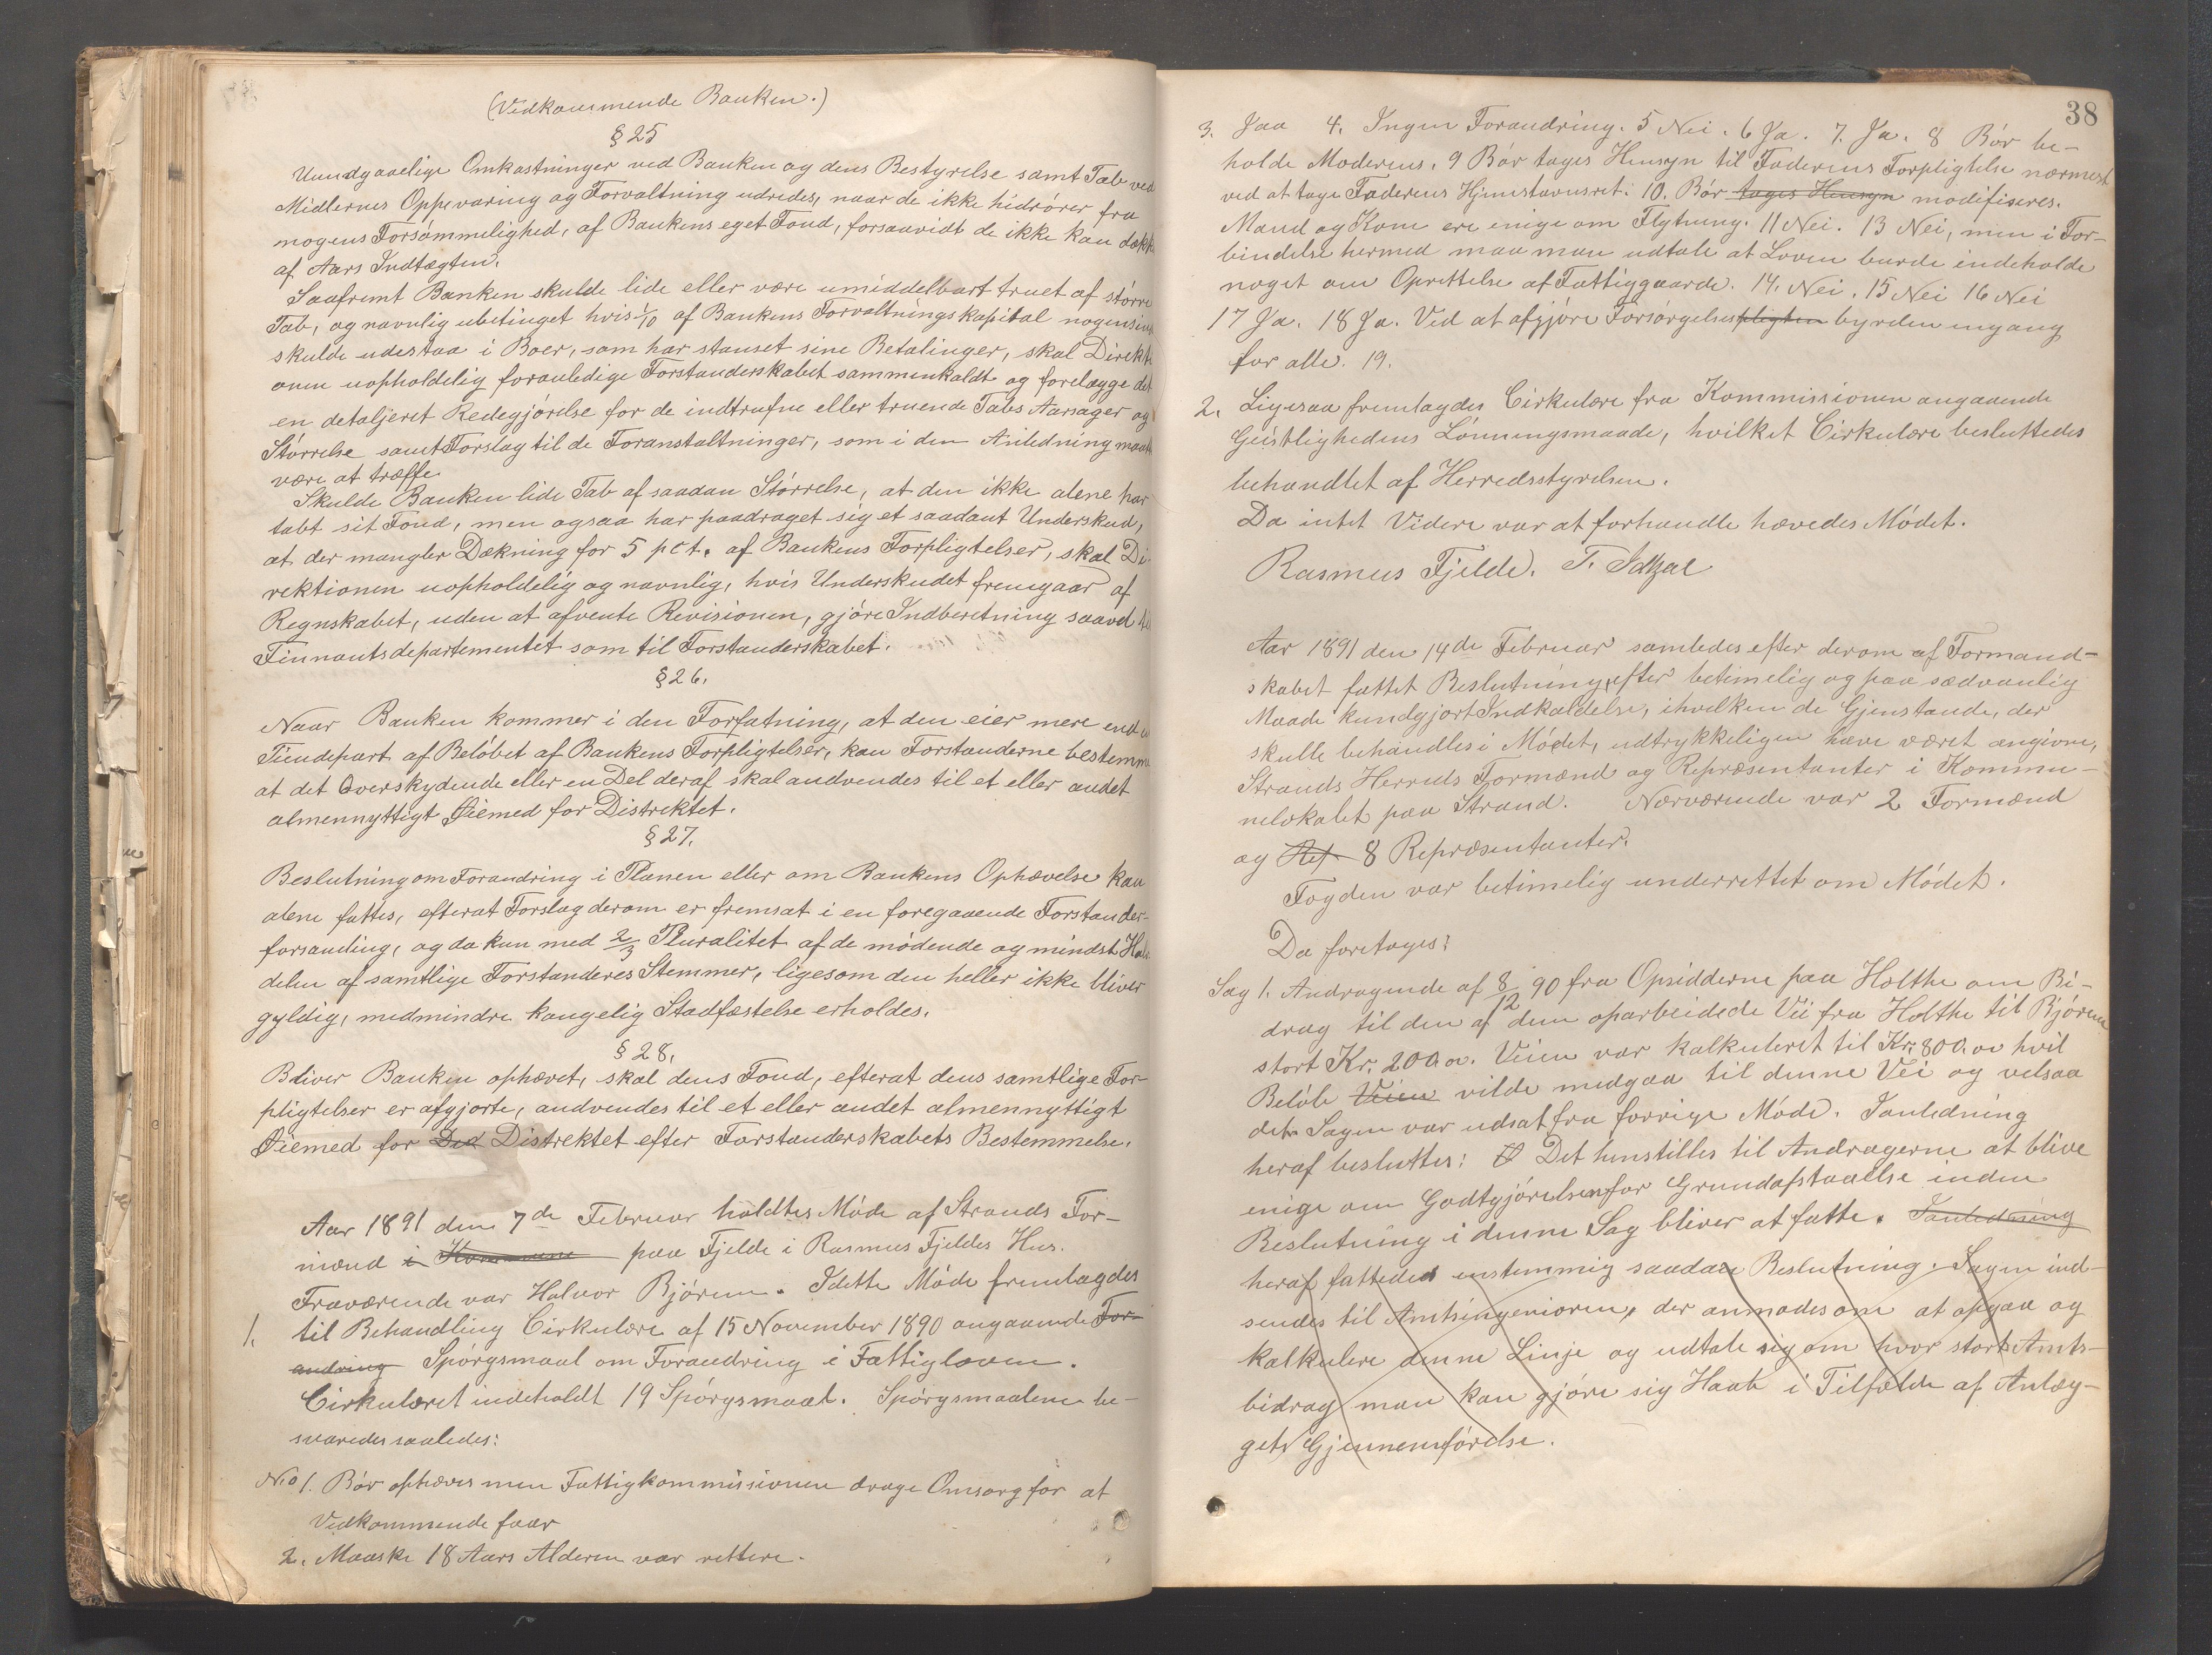 (Vedkommende Banken.)
§ 25
Uundgaaelige Omkastninger ved Banken og dens Bestyrelse samt Tab ved
Midlernes Oppevaring og Forvaltning udredes, naar de ikke hidrører fra
nogens Forsømmelighed, af Bankens eget Fond, forsaavidt de ikke kan dække
af Aars Indtægten.
Saafremt Banken skulde lide eller være umiddelbart truet af større
Tab, og navnlig ubetinget hvis 1/10 af Bankens Forvaltningskapital nogensin
skulde udestaa i Boer, som har stanset sine Betalinger, skal Direkti
onen uopholdelig foranledige Forstanderskabet sammenkaldt og forelægge det
en detaljeret Redegjørelse for de indtrufne eller truende Tabs Aarsager og
Størrelse samt Forslag til de Foranstaltninger, som i den Anledning maatt
være at træffe.
Skulde Banken lide Tab af saadan Størrelse, at den ikke alene har
tabt sit Fond, men ogsaa har paadraget sig et saadant Underskud,
at der mangler Dækning for 5 pct. af Bankens Forpligtelser, skal Di-
rektionen uopholdelig og navnlig, hvis Underskudet fremgaar af
Regnskabet, uden at afvente Revisionen, gjøre Indberetning saavel til
Finnantsdepartementet som til Forstanderskabet.
§ 26.
Naar Banken kommer i den Forfatning, at den eier mere end
Tiendepart af Beløbet af Bankens Forpligtelser, kan Forstanderne bestemme
at det Overskydende eller en Del deraf skal andvendes til et eller andet
almennyttigt Øiemed for Distrektet.
§ 27.
Beslutning om Forandring i Planen eller om Bankens Ophævelse kan
alene fattes, efterat Forslag derom er fremsat i en foregaaende Forstander-
forsamling, og da kun med 2/3 Pluralitet af de mødende og mindst Halv
delen af samtlige Forstanderes Stemmer, ligesom den heller ikke bliver
gyldig, medmindre kongelig Stadfæstelse erholdes.
§ 28.
Bliver Banken ophævet, skal dens Fond, efterat dens samtlige For-
pligtelser er afgjorte, andvendes til et eller andet almennyttigt
Øiemed for Ded Distrektet efter Forstanderskabets Bestemmelse.
Aar 1891 den 7de Februar holdtes Møde af Strands For-
mænd i Kommune paa Fjelde i Rasmus Fjeldes Hus.
Fraværende var Halvor Bjøren. I dette Møde fremlagdes
1. til Behandling Cirkulære af 15 November 1890 angaaende For-
andring Spørgsmaal om Forandring i Fattigloven.
Cirkulæret indeholdt 19 Spørgsmaal. Spørgsmaalene be-
svaredes saaledes:
No 1. Bør ophæves men Fattigkommissionen drage Omsorg for at
Vedkommende faar
2. Maaske 18 Aars Alderen var rettere.
38
3. Jaa 4. Ingen Forandring. 5 Nei. 6 Ja. 7. Ja. 8 Bør be-
holde Moderens. 9 Bør tages Hensyn til Faderens Forpligtelse nærmest
ved at tage Faderens Hjemstavnsret. 10. Bør tages Hensyn modifiseres.
Mand og Kone ere enige om Flytning. 11 Nei. 13 Nei, men i For-
bindelse hermed maa man udtale at Loven burde indeholde
noget om Oprettelse af Fattiggaarde. 14. Nei. 15 Nei 16 Nei
17 Ja. 18 Ja. Ved at afgjøre Forsørgelsespligten byrden engang
for alle. 19.
2. Ligesaa fremlagdes Cirkulære fra Kommissionen angaaende
Geistlighedens Lønningsmaade, hvilket Cirkulære besluttedes
behandlet af Herredsstyrelsen.
Da intet Videre var at forhandle hævedes Mødet.
Rasmus Fjelde. T.
Aar 1891 den 14de Februar samledes efter derom af Formand-
skabet fattet Beslutning, efter betimelig og paa sædvanlig
Maade kundgjort Indkaldelse, i hvilken de Gjenstande, der
skulle behandles i Mødet, udtrykkeligen have været angivne,
Strands Herreds Formænd og Repræsentanter i Kommu-
nelokalet paa Strand. Nærværende var 2 Formænd
og Rep. 8 Repræsentanter.
Fogden var betimelig underrettet om Mødet.
Da foretages:
Sag 1. Andragende af 8/12 90 fra Opsidderne paa Holthe om Bi-
drag til den af dem oparbeidede Vei fra Holthe til Bjøren
stort Kr. 200.00. Veien var kalkuleret til Kr. 800.00 hvil
Beløb Veien vilde medgaa til denne Vei og velsaa
det. Sagen var udsat fra forrige Møde. I anledning
heraf besluttes: Det henstilles til Andragerne at blive
enige om Godtgjørelsen for Grundafstaaelse inden
Beslutning i denne Sag bliver at fatte. I anledning
heraf fattedes enstemmig saadan Beslutning. Sagen ind-
sendes til Amtsingeniøren, der anmodes om at opgaa og
kalkulere denne Linje og udtale sig om hvor stort Amts-
bidrag man kan gjøre sig Haab i Tilfælde af Anlæg-
gets Gjennemførelse.